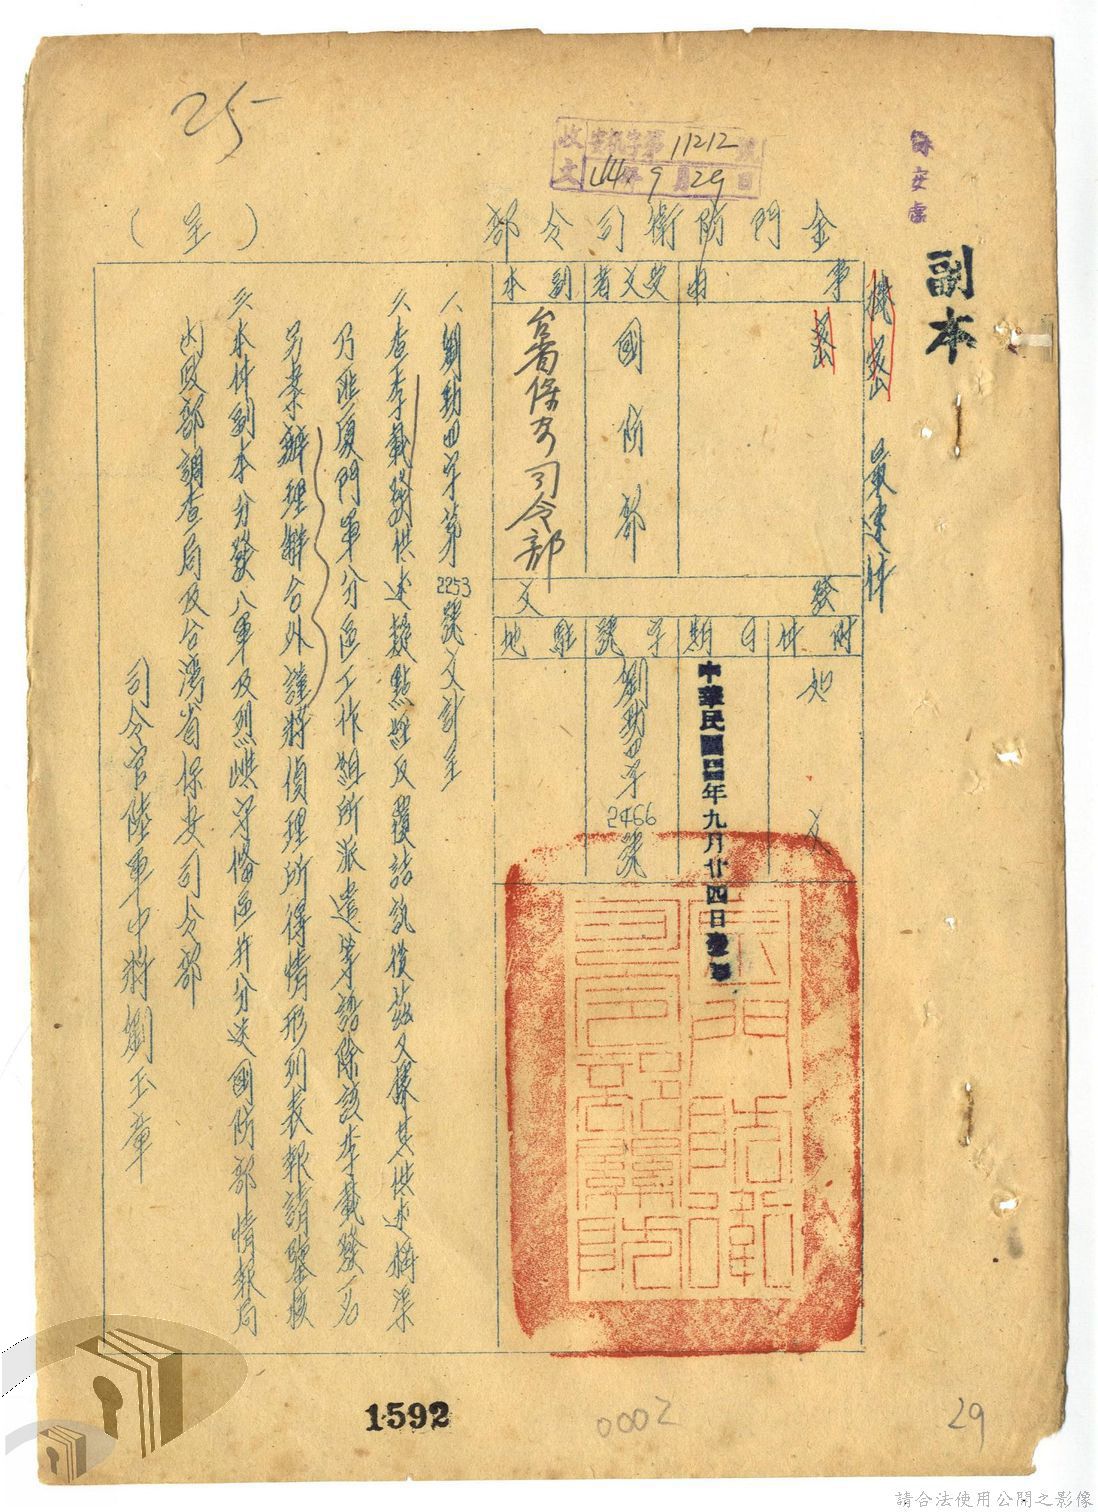 25
收文 安机字第11212號
44年9月29日
保安處
副本
機密 最速件
金門防衛司令部（呈）
事由
受文者
副本
密
國防部
台省保安司令部
發文
附件
日期
字號
駐地
如文
中華民國四四年九月廿四日發
劉勛四字2466號
一、劉勛四字第2253號文計呈
二、查李載發供述疑點經反覆詰訊後茲又據其供述稱渠
乃匪廈門軍分區工作組所派遣等語除該李載發一名
另案辦理解台外謹將偵理所得情形列表報請鑒核
三、本件副本分發八軍及烈嶼守備區并分送國防部情報局
內政部調查局及台灣省保安司令部
司令官陸軍中將劉玉章
1592
0002
29
請合法使用公開之影像